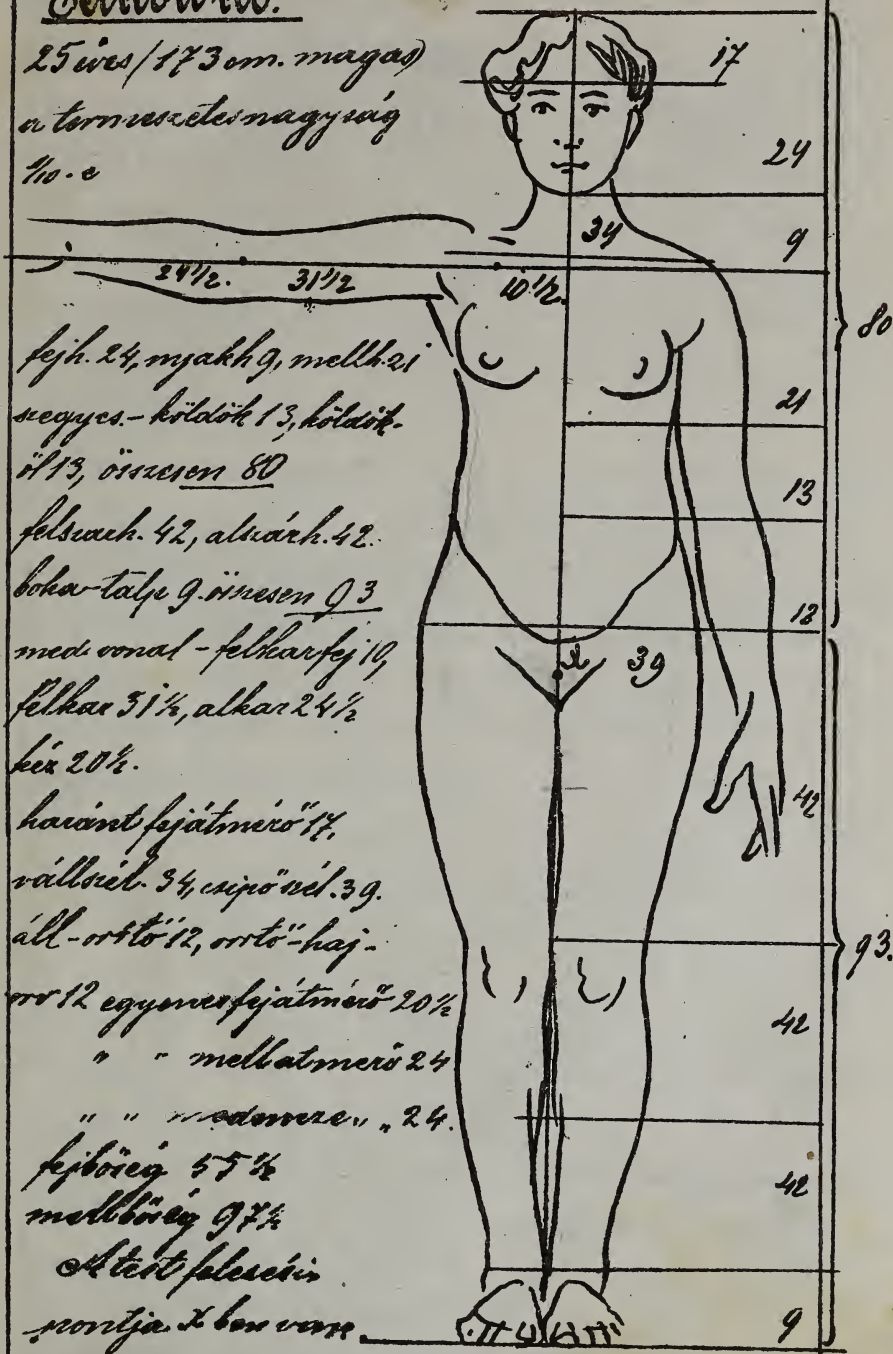 25 éves (173 cm. magas)
a termeszetes nagyság
1/10-e
fejh. 24, nyakh 9, mellh. 21
szegycs.- köldök 13, köldök-
öl 13, összesen 80
felszárh. 42, alszárh. 42.
boka-talp 9. összesen 93
med. vonal - felkarfej 10,
felkar 31 1/2, alkar 24 1/2
kéz 20 1/2.
haránt fejátmérő 17.
vállszél. 34, csipőszél. 39.
áll-orrtő 12, orrtő-haj-
orr 12 egyenes fejátmérő 20 1/2
" " mellatmerő 24
" " medencze " " 24.
fejbőség 55 1/2
mellbőség 97 1/2
A test felezési
pontja X ben van.
17
24
34
9
24 1/2.
31 1/2
10 1/2.
80
21
13
12
X
39
42
93.
42
42
9